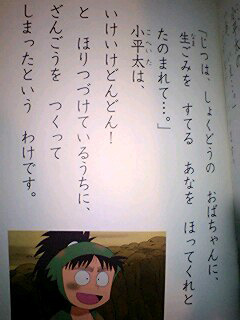 「じつは、しょくどうの おばちゃんに、
生ごみを すてる あなを ほってくれと
たのまれて…。」
小平太は、
いけいけどんどん！
と ほりつづけているうちに、
ざんごうを つくって
しまったという わけです。